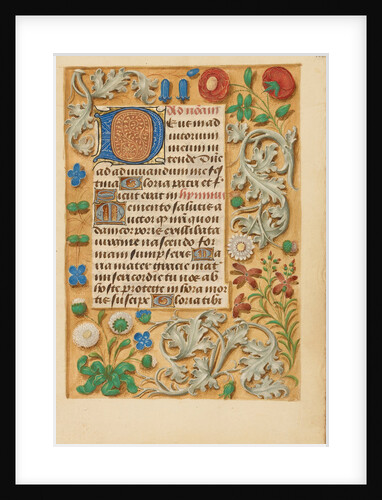 Ad nonam
Deus in ad
iutorum
meum in
tende Dne
ad adiuuandum me fes
tina Gloria patri et f
Sicut erat in hymnus
Memento salutis
auctor qd nri quon
dam corporis ex illibata
uirgine nascendo for
mam sumpseris Ma
ria mater gracie mat
misericordie tu nos ab
hoste protege in hora mor
tis suscipe Gloria tibi